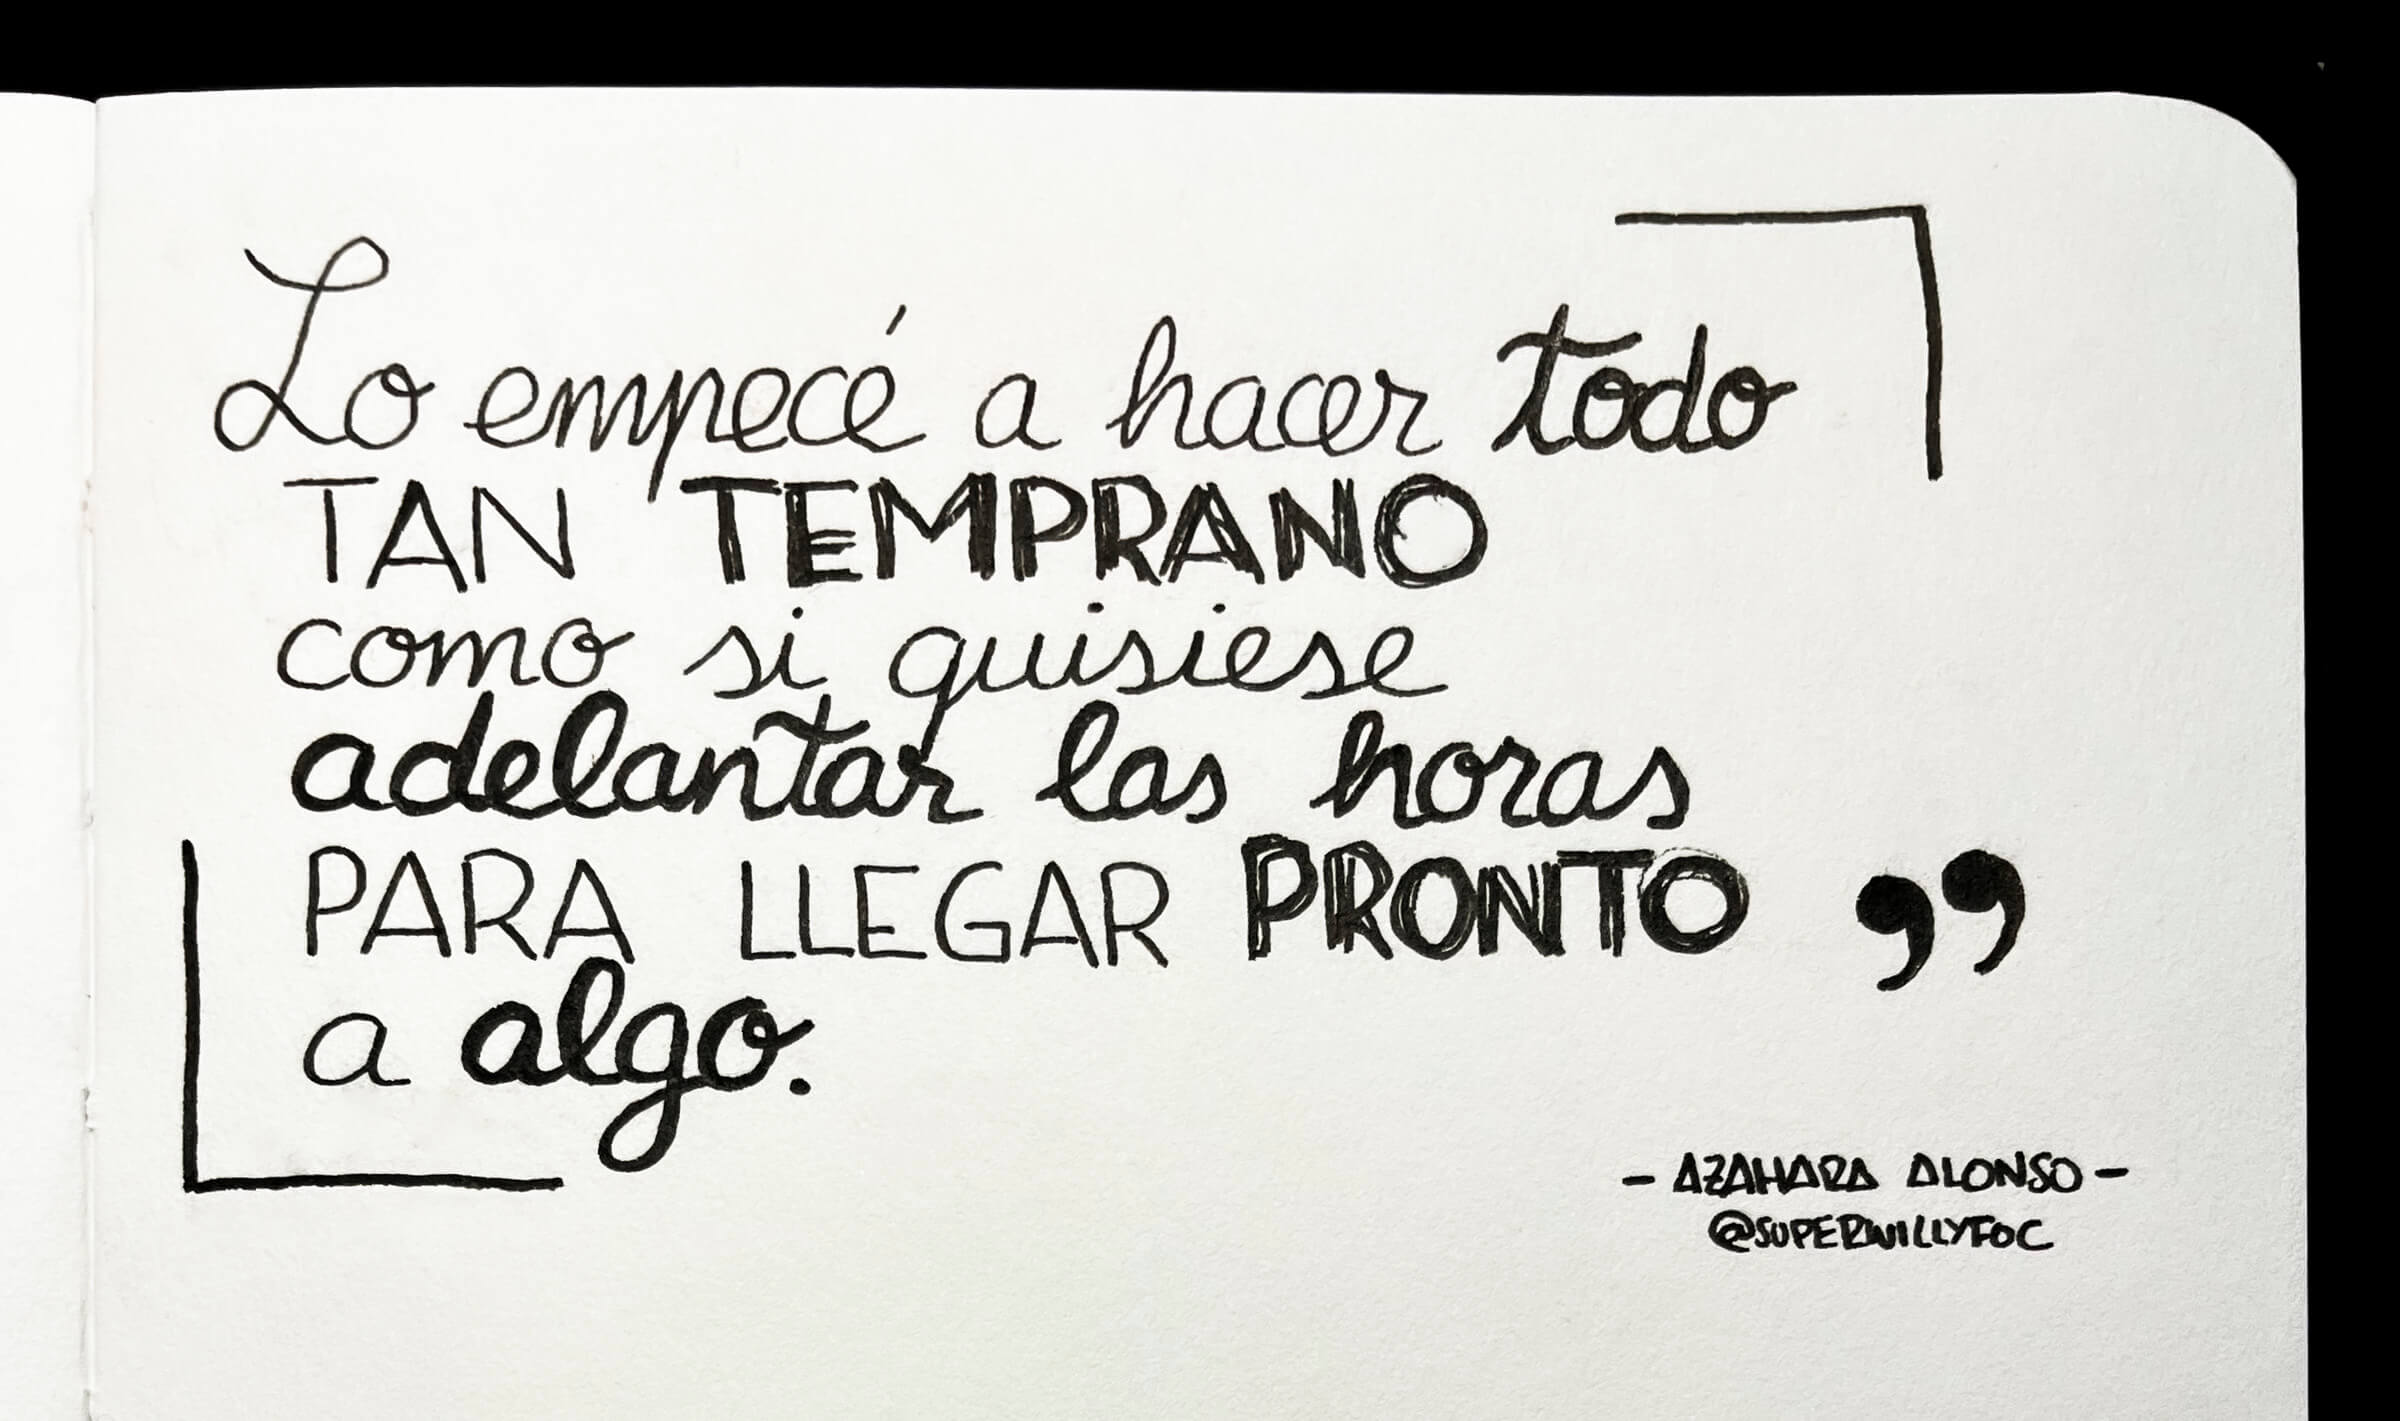 Lo empecé a hacer todo
TAN TEMPRANO
como si quisiese
adelantar las horas
PARA LLEGAR PRONTO
a algo. ”
- AZAHARA ALONSO -
@SUPERWILLYFOC